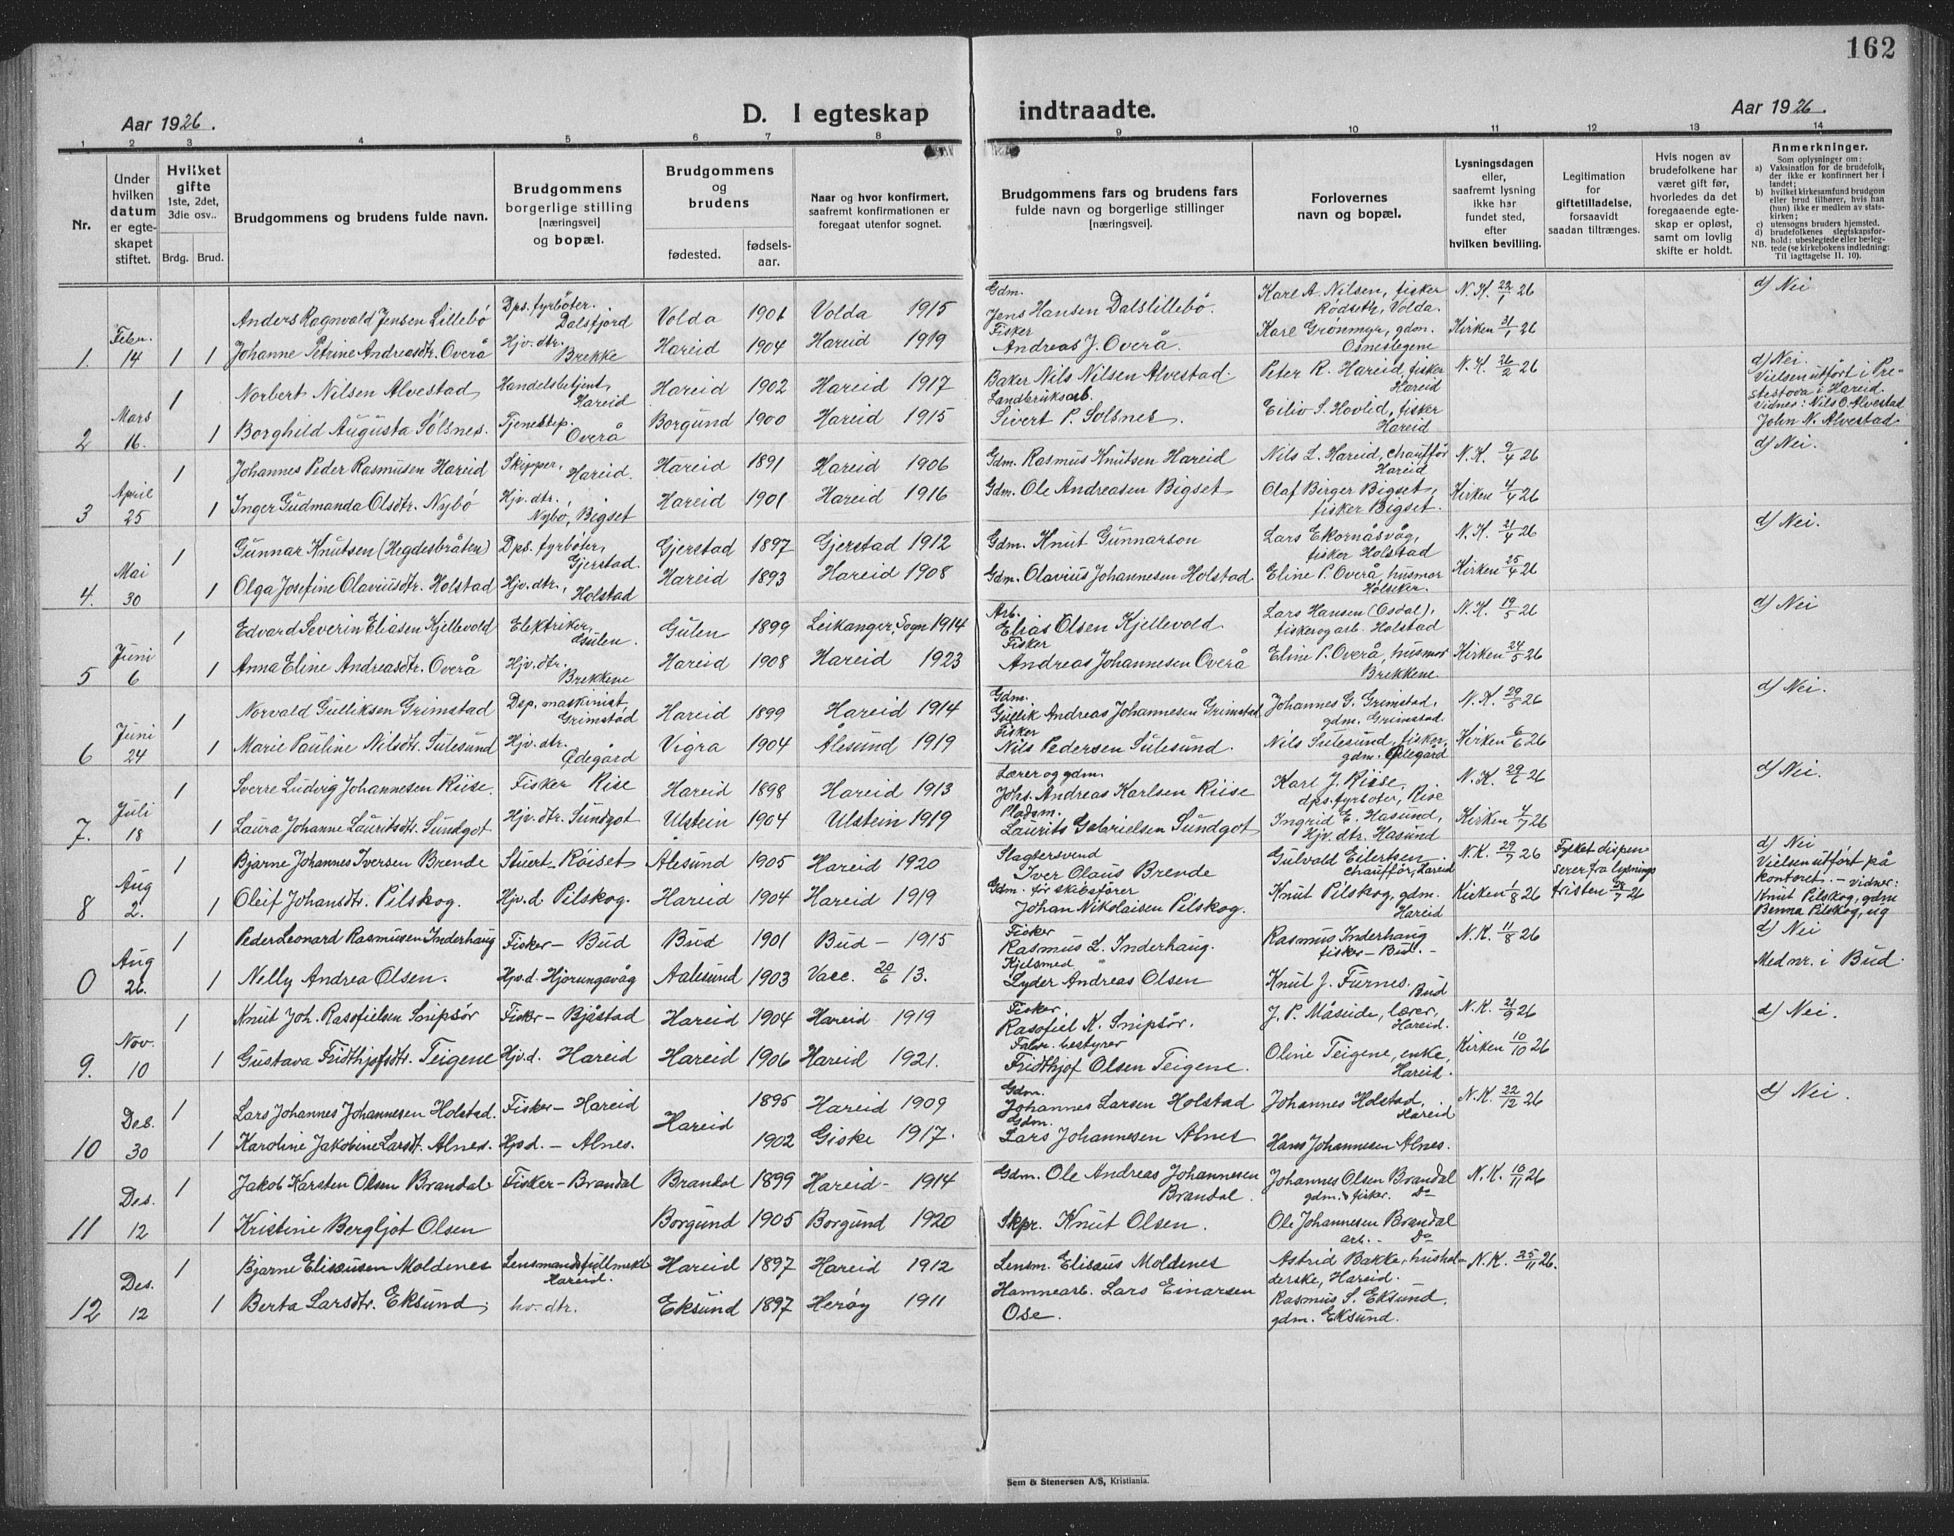 162
Aar 1926.
D. I egteskap
indtraadte.
Aar 1926.
1 2 3 4 5 6 7 8 9 10 11 12 13 14
Nr.
Under hvilken datum er egteskapet stiftet.
Hvilket gifte 1ste, 2det, 3die osv..
Brdg. Brud.
Brudgommens og brudens fulde navn.
Brudgommens borgerlige stilling [næringsvei] og bopæl.
Brudgommens og brudens
fødested.
fødselsaar.
Naar og hvor konfirmert, saafremt konfirmationen er foregaat utenfor sognet.
Brudgommens fars og brudens fars fulde navn og borgerlige stillinger [næringsvei].
Forlovernes navn og bopæl.
Lysningsdagen eller, saafremt lysning ikke har fundet sted, efter hvilken bevilling.
Legitimation for giftetilladelse, forsaavidt saadan tiltrænges.
Hvis nogen av brudefolkene har været gift før, hvorledes da det foregaaende egteskap er opløst, samt om lovlig skifte er holdt.
Anmerkninger.
Som oplysninger om:
a) Vaksination for de brudefolk, der ikke er konfirmert her i landet;
b) hvilket kirkesamfund brudgom eller brud tilhører, hvis han (hun) ikke er medlem av statskirken;
c) utensogns bruders hjemsted.
d) brudefolkenes slegtskapsforhold: ubeslegtede eller beslegtede (se kirkebokens indledning: Til iagttagelse II. 10).
NB.
Anders Ragnvald Jensen Lillebö Dps. fyrböter. Dalsfjord Volda 1906 Volda 1915 Gdm. Jens Hansen Dalslillebö. Karl A. Nilsen, fisker Rödseth, Volda. N.K. 22/1 26 d) Nei
1. Febr. 14 1 1 Johanne Petrine Andreasdtr. Overå Hjv. dtr. Brekke Hareid 1904 Hareid 1919 Fisker Andreas J. Overå. Karl Grönmyr, gdm. Osneslegene Kirken 31/1 26
1 Norbert Nilsen Alvestad Handelsbetjent, Hareid Hareid 1902 Hareid 1917 Baker Nils Nilsen Alvestad. Peter R. Hareid, fisker Hareid N.K. 26/2 26 d) Nei. Vielsen utfört i Prestestova i Hareid. Vidner: Nils O. Alvestad John N. Alvestad
2 Mars 16. 1 Borghild Augusta Solsnes. Tjenestep. Overå Borgund 1900 Hareid 1915 Landbruksarb. Sivert P. Solsnes. Eiliv S. Hovlid, fisker Hareid
1 Johannes Peder Rasmusen Hareid Skipper, Hareid. Hareid 1891 Hareid 1906 Gdm. Rasmus Knutsen Hareid Nils L. Hareid, chauffør Hareid N.K. 9/4 26 d) Nei.
3 April 25 1 Inger Gudmanda Olsdtr. Nybö Hjv. dtr. Nybö, Bigset Hareid 1901 Hareid 1916 Gdm. Ole Andreasen Bigset Olaf Birger Bigset, fisker Bigset. Kirken 4/4 26
1 Gunnar Knutsen (Hegdesbråten) Dps. fyrböter, Gjerstad. Gjerstad 1897 Gjerstad 1912 Gdm. Knut Gunnarson Lars Ekornåsvåg, fisker Holstad N.K. 21/4 26 d) Nei.
4. Mai 30 1 Olga Josefine Olaviusdtr. Holstad Hjv. dtr., Holstad Hareid 1893 Hareid 1908 Gdm. Olavius Johannesen Holstad Eline P. Overå, husmor Kirken 25/4 26
1 Edvard Severin Eliasen Kjellevold Elektriker, Gulen. Gulen 1899 Leikanger, Sogn 1914 Arb. Elias Olsen Kjellevold Lars Hansen (Osdal), fisker og arb. Holstad N.K. 19/5 26 d) Nei
5 Juni 6 1 Anna Eline Andreasdtr. Overå Hjv. dtr. Brekkene Hareid 1908 Hareid 1923 Fisker Andreas Johannesen Overå Eline P. Overå, husmor Brekkene Kirken 24/5 26
1 Norvald Gulliksen Grimstad Dsp. maskinist, Grimstad Hareid 1899 Hareid 1914 Gdm. Gullik Andreas Johannesen Grimstad Johannes G. Grimstad, gdm. Grimstad. N.K. 29/5 26 d) Nei.
6 Juni 24 1 Marie Pauline Nilsdtr. Sulesund Hjv. dtr. Ødegård Vigra 1904 Ålesund 1919 Fisker Nils Pedersen Sulesund. Nils Sulesund, fisker, gdm. Ødegård Kirken 6/6 26
1 Sverre Ludvig Johannesen Riise. Fisker Rise Hareid 1898 Hareid 1913 Lærer og gdm. Johs. Andreas Karlsen Riise Karl J. Riise, dps. fyrböter, Rise N.K. 29/6 26 d) Nei.
7. Juli 18 1 Laura Johanne Lauritsdtr. Sundgot Hjv. dtr. Sundgot Ulstein 1904 Ulstein 1919 Pladsm. Laurits Gabrielsen Sundgot Ingrid E. Hasund, Hjv. dtr. Hasund Kirken 4/7 26
1 Bjarne Johannes Iversen Brende Stuert - Röiset Alesund 1905 Hareid 1920 Slagtersvend Iver Olaus Brende Gulvald Eilertsen Chauffør, Hareid N.K. 29/7 26 Fylket dispenserer fra lysningsfristen 28/7 26 d) Nei Vielsen utført på kontoret. - vidner: Knut Pilskog, gdm Benna Pilskog, ug
8 Aug 2. 1 Oleif Johansdtr. Pilskog. Hjv. d Pilskog. Hareid 1904 Hareid 1919 Gdm. før skibsfører Johan Nikolaisen Pilskog. Knut Pilskog, gdm. Hareid Kirken 1/8 26
1 Peder Leonard Rasmusen Inderhaug Fisker - Bud Bud 1901 Bud - 1915 Fisker Rasmus L. Inderhaug. Rasmus Inderhaug fisker - Bud. - N.K. 11/8 26 d) Nei
0 Aug 26. 1 Nelly Andrea Olsen. Hjv. d. Hjorungavåg Aalesund 1903 Vacc. 20/6 13. Kjelsmed Lyder Andreas Olsen Knut J. Furnes. Bud Med nr. i Bud.
1 Knut Joh. Rasofielsen Snipsör Fisker - Bjåstad Hareid 1904 Hareid 1919 Fisker Rasofiel K. Snipsör. J. P. Måseide, lærer, Hareid. N.K. 21/9 26 d) Nei.
9. Nov. 10 1 Gustava Fridthjofsdtr. Teigene Hjv. d. Hareid Hareid 1906 Hareid 1921. Fabr. bestyrer Fridthjof Olsen Teigene. Oline Teigene, enke, Hareid. Kirken 10/10 26
1 Lars Johannes Johannesen Holstad. Fisker - Hareid Hareid 1895 Hareid 1909 Gdm. Johannes Larsen Holstad Johannes Holstad, Hareid N.K. 22/12 26 d) Nei.
10 Des. 30 1 Karoline Jakobine Larsdtr. Alnes. Hjv. d. - Alnes. 1902 Giske 1917. Gdm. Lars Johannesen Alnes Hans Johannesen Alnes.
1 Jakob Karsten Olsen Brandal Fisker - Brandal Brandal 1899 Hareid - 1914 Gdm. Ole Andreas Johannesen Brandal. Johannes Olsen Brandal gdm. & fisker. Do N.K. 10/11 26
11 Des. 12 1 Kristine Bergljot Olsen Borgund 1905 Borgund 1920 Skpr. Knut Olsen. Ole Johannesen Brandal arb. - Do
1 Bjarne Eliseusen Moldenes Lensmandsfullmekt. Hareid. Hareid 1897 Hareid 1912 Lensm. Eliseus Moldenes Astrid Bakke, husholderske, Hareid. N.K. 25/11 26.
12 Des. 12 1 Berta Larsdtr. Eksund. hv. dtr. Eksund 1897 Herøy 1911 Hamnearb. Lars Einarsen Ose. Rasmus S. Eksund. gdm. Eksund.
Sem & Stenersen A/S, Kristiania.